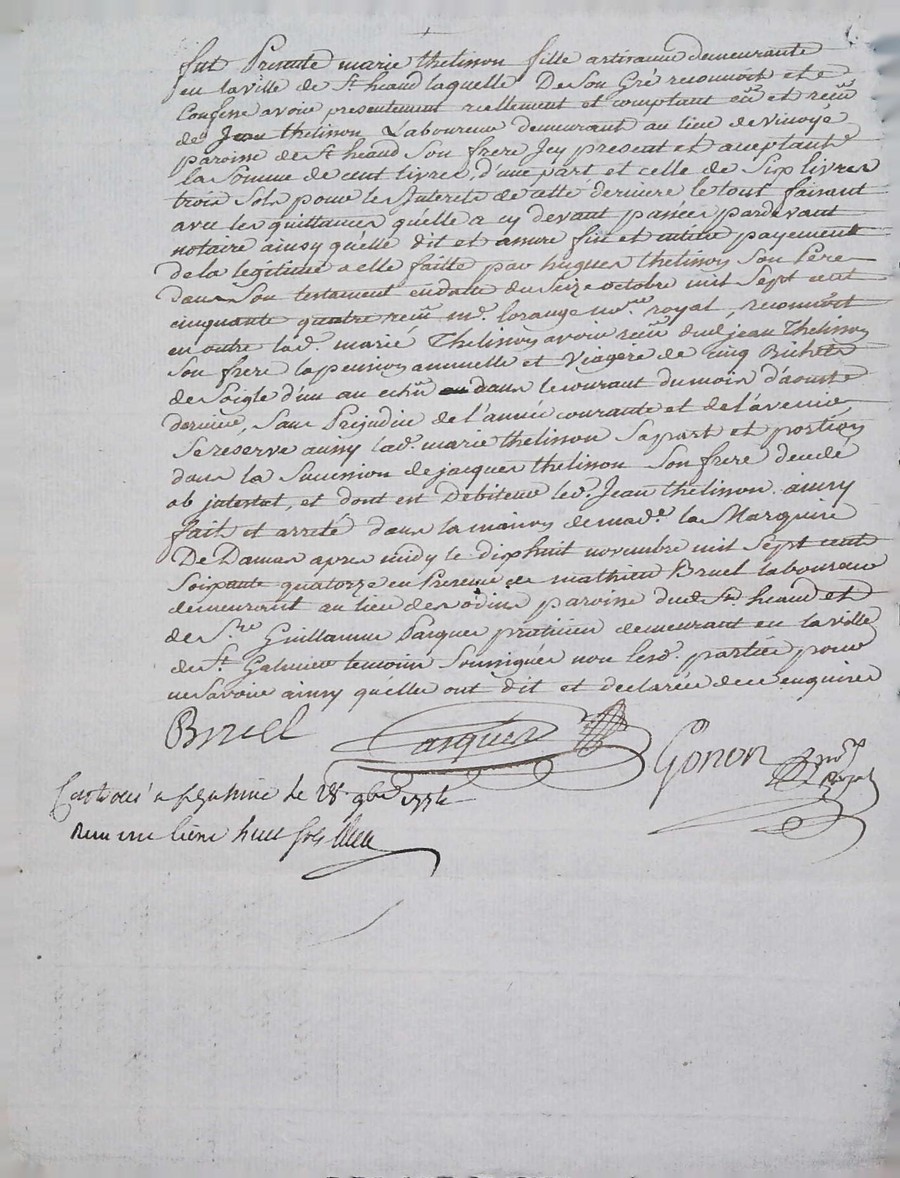 fut Presente marie thelisson fille artisanne demeurante
en la ville de St heand laquelle De Son Gré reconnoit et
Confesse avoir presentement reellement et comptant eû et reçû
de Jean thelisson Laboureur demeurant au lieu de vinoye
paroisse de St heand Son frere Jcy present et aceptant
la Somme de cent livres, d'une part et celle de Six livres
trois Sols pour les Interets de cette derniere le tout faisant
avec les quittances qu'elle a cy devant passées pardevant
notaire ainsy qu'elle dit et assure fin et entier payement
de la legitime a elle faitte par hugues thelisson Son Pere
dans Son testament en datte du Seize octobre mil Sept cent
cinquante quatre reçû me. lorange nore. royal, reconnoit
en outre lade. marie Thelisson avoir reçû dud. jean Thelisson
Son frere la pension annuelle et Viagere de cinq Bichets
de Soigle d'un an echû dans le courant du mois d'aoust
dernier, Sans Prejudice de l'année courante et de l'avenir,
Se reserve aussy lade. marie thelisson Sa part et portion
dans la Succession de jacques thelisson Son frere decedé
ab intestat, et dont est Debiteur led. Jean thelisson. ainsy
fait et arreté dans la maison de made. la Marquise
De Damas apres midy le dixhuit novembre mil Sept cent
Soixante quatorze en Presence de mathieu Bruel laboureur
demeurant au lieu des odins paroisse dud. St. heand et
de Sre. Guillaume Pasquet praticien demeurant en la ville
de St. Galmier temoins Soussignés non lesd. parties pour
ne Savoir ainsy qu'elles ont dit et declarée de ce enquises
Bruel Pasquet Gonon nore Royal
Controlé a St galmier le 28. 9bre 1774
Reçu une livre huit sols